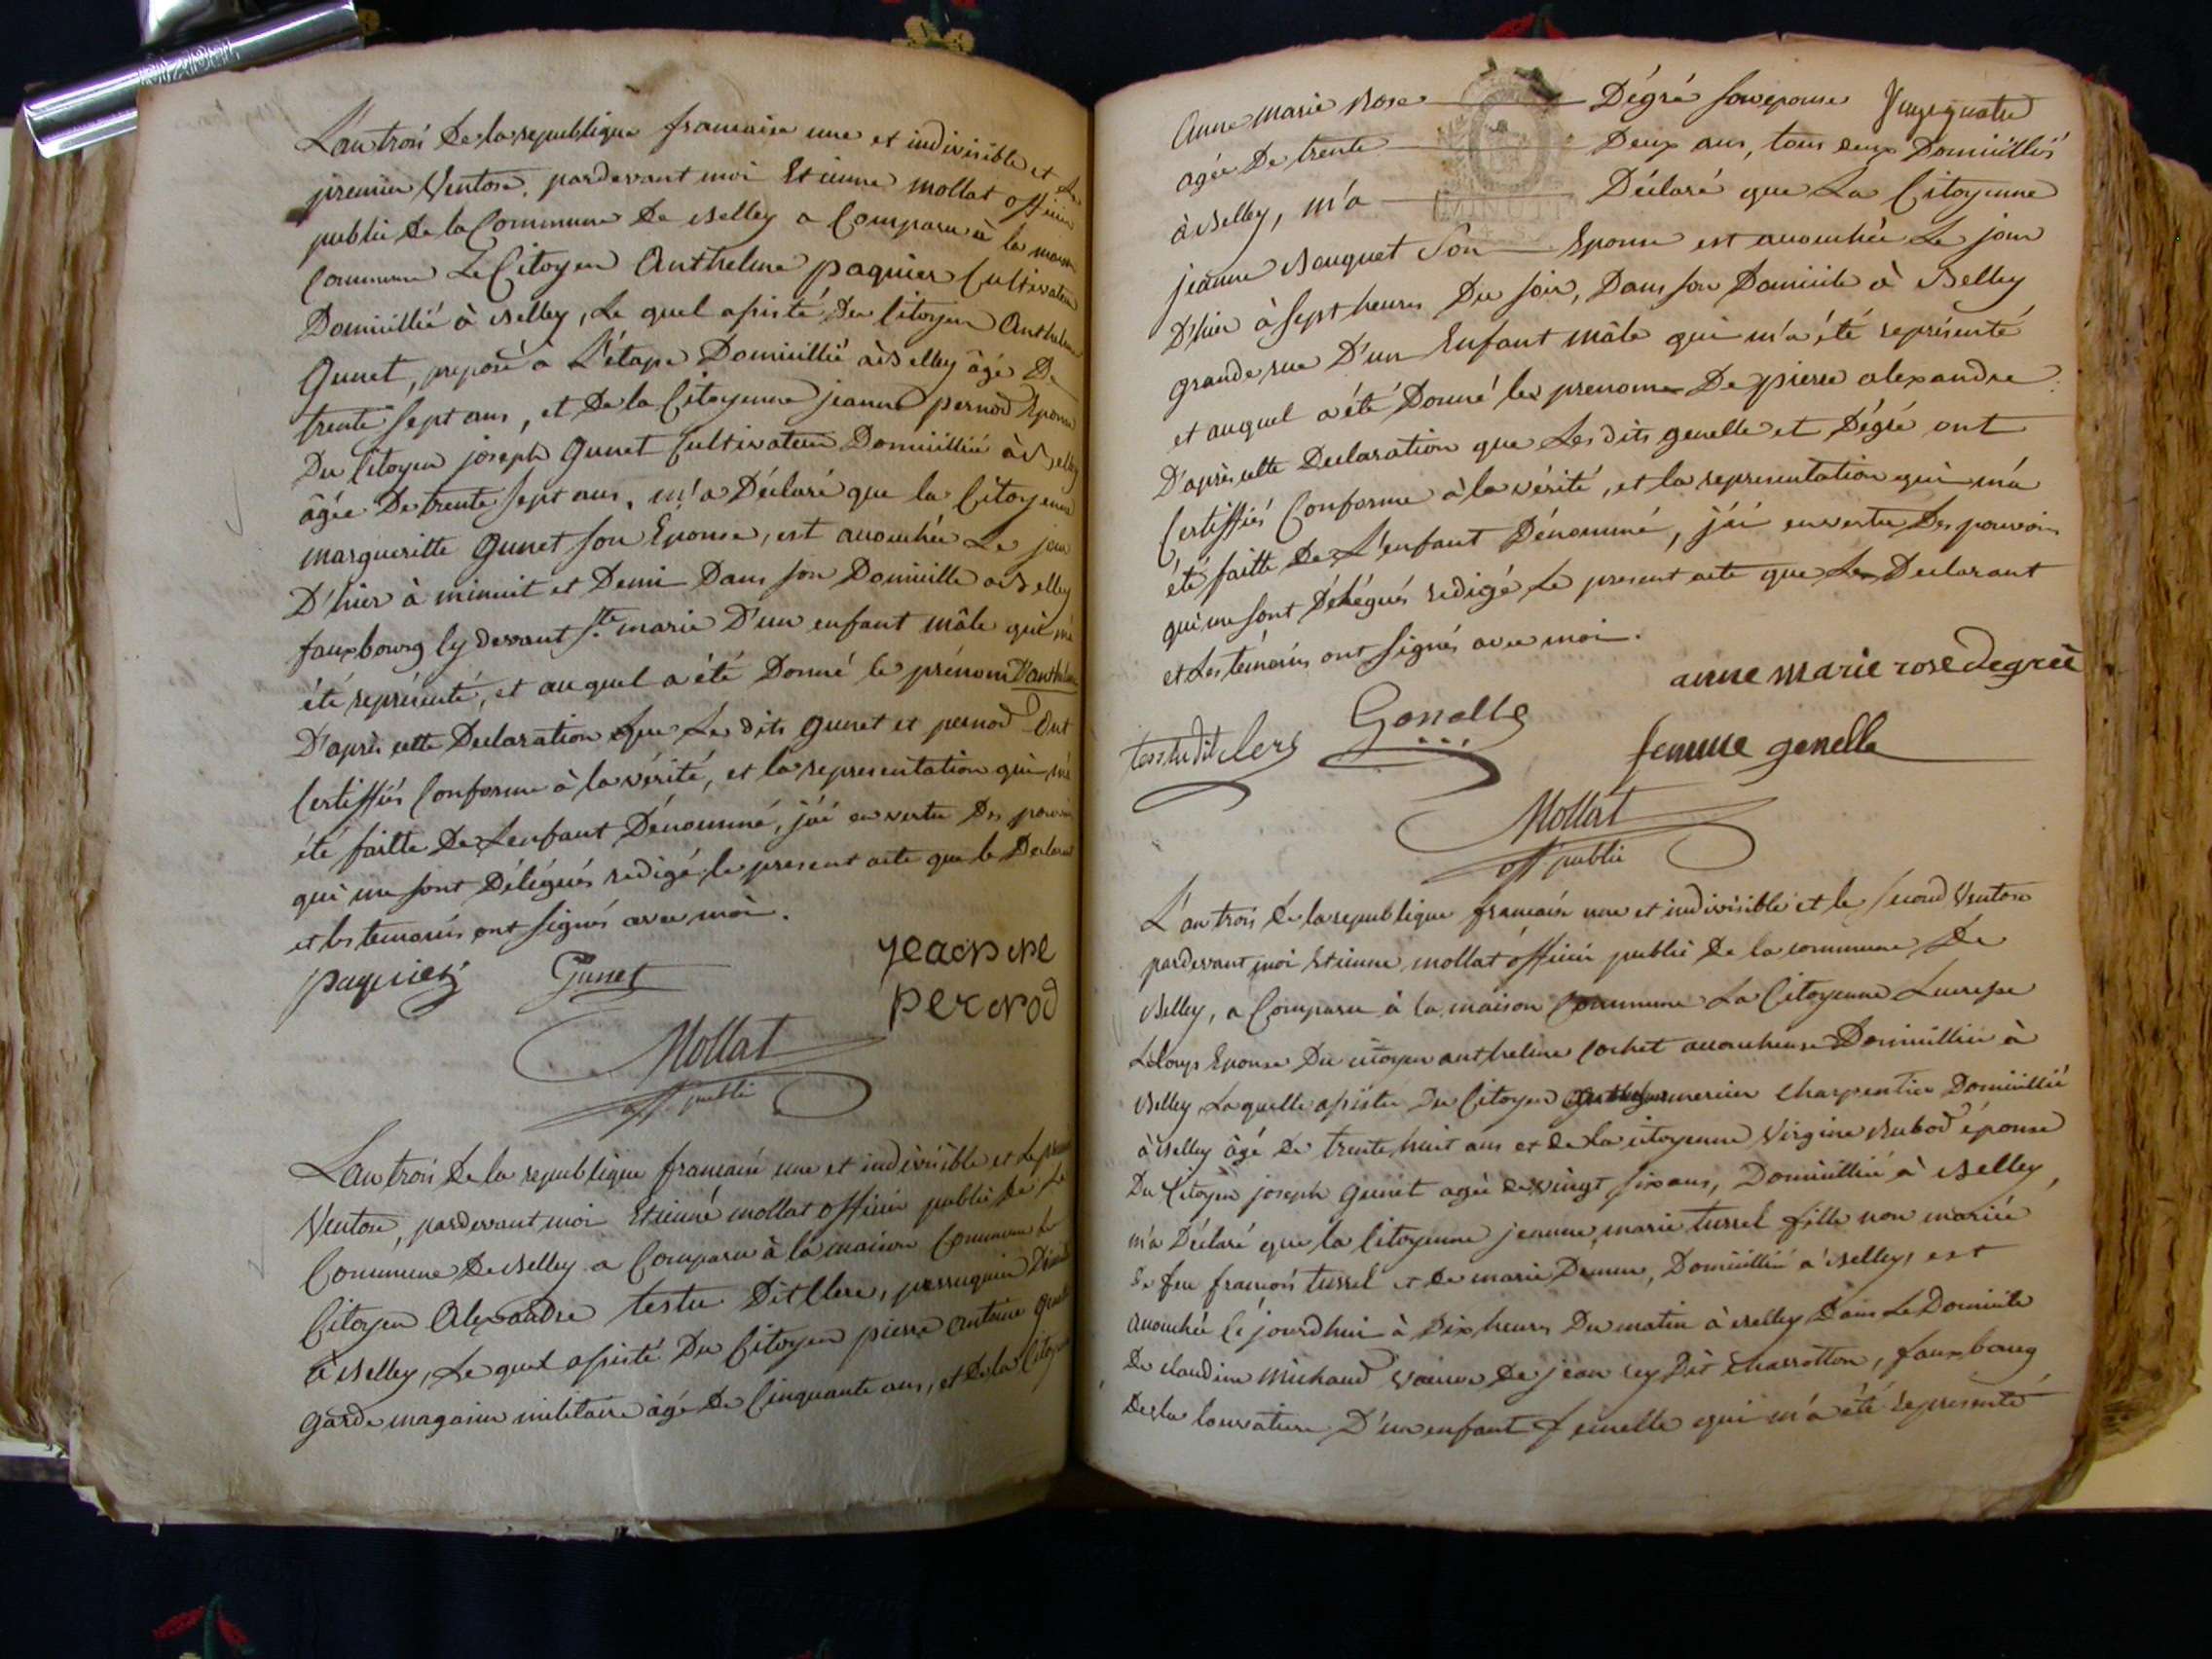 L'an trois de la republique francaise une et indivisible et Le
premier Ventose, pardevant moi Etienne mollat officier
public de la Commune de Belley a Comparu à la maison
Commune Le Citoyen Anthelme paquier Cultivateur
Domicillié à Belley, Le quel assisté Du Citoyen Anthelme
Gunet, preposé a L'étape Domicillié à Belley âgé De
trente sept ans, et De la Citoyenne jeanne pernod Epouse
Du Citoyen joseph Gunet Cultivateur Domicillié à Belley
âgée De trente sept ans, m'a Déclaré que la Citoyenne
margueritte Gunet son Epouse, est accouchée Le jour
D'hier à minuit et Demi Dans son Domicille à Belley
fauxbourg cy devant Ste marie D'un enfant mâle qui m'a
été représenté, et auquel a été Donné le prénom D'anthelme
D'après cette Declaration que Les dits Gunet et pernod Ont
Certiffiés Conforme à la vérité, et la representation qui m'a
été faitte De L'enfant Dénommé, j'ai en vertu Des pouvoirs
qui me sont Délégués redigé le present acte que le Declarant
et les temoins ont signés avec moi.
paquier Gunet jeanne
pernod
Mollat
off public
L'an trois de la republique francaise une et indivisible et Le premier
Ventose, pardevant moi Etienne mollat officier public De La
Commune De Belley a Comparu à la maison Commune Le
Citoyen Alexandre testu Dit Clerc, perruquier
à Belley, Le quel assisté Du Citoyen pierre antoine
garde magasin militaire âgé De Cinquante ans, et De la Citoyenne
Anne marie Rose Dégré son epouse
agée De trente Deux ans, tous deux Domicilliés
à Belley, m'a Déclaré que La Citoyenne
jeanne Bouquet Son Epouse est accouchée Le jour
D'hier à sept heures Du soir, Dans son Domicile à Belley
grande rue D'un Enfant mâle qui m'a été représenté
et auquel a été Donné les prenoms De pierre alexandre
D'après cette Declaration que Les dits genelle et Dégré ont
Certiffiés Conforme à la vérité, et la representation qui m'a
été faitte De L'enfant Dénommé, j'ai en vertu Des pouvoirs
qui me sont Délégués redigé Le present acte que Le Declarant
et Les témoins ont signés avec moi.
anne marie rose degrée
testu dit clerc Genelle femme genelle
Mollat
off public
L'an trois de la republique francaise une et indivisible et le second Ventose
pardevant moi Etienne mollat officier public De la commune De
Belley, a Comparu à la maison Commune La Citoyenne
Epouse Du citoyen anthelme Cochet accoucheuse Domicilliée à
Belley, Laquelle assistée Du Citoyen mercier Charpentier Domicillié
à Belley âgé De trente huit ans et De la citoyenne Virgine Rubod épouse
Du Citoyen joseph Gunet agée De vingt six ans, Domicilliée à Belley,
m'a Déclaré que la Citoyenne jeanne marie tussel fille non mariée
De feu francois tussel et De marie Domicillié à Belley, est
accouchée Cejourdhui à Dix heures Du matin à Belley Dans Le Domicile
De claudine Michaud veuve De jean rey Dit faux bourg
De la D'un enfant femelle qui m'a été représenté